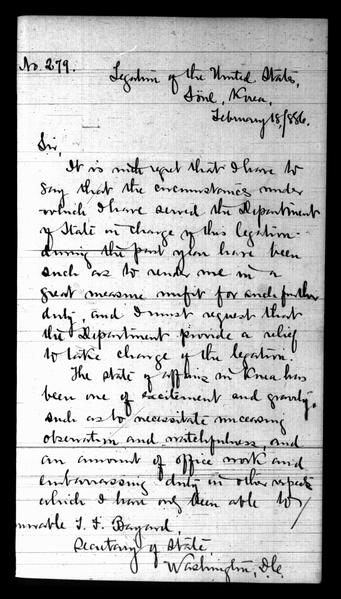 No. 279.
Legation of the United States,
Söul, Korea,
February 18, 1886.
Sir,
It is with regret that I have to
say that the circumstances under
which I have served the Department
of State in charge of this legation
during the past year have been
such as to render me in a
great measure unfit for such further
duty, and I must request that
the Department provide a relief
to take charge of the legation.
The state of affairs in Korea has
been one of excitement and gravity,
such as to necessitate unceasing
observation and watchfulness, and
an amount of office work and
embarrassing duty in other respects
which I have only been able to
onorable T. F. Bayard,
Secretary of State,
Washington, D.C.